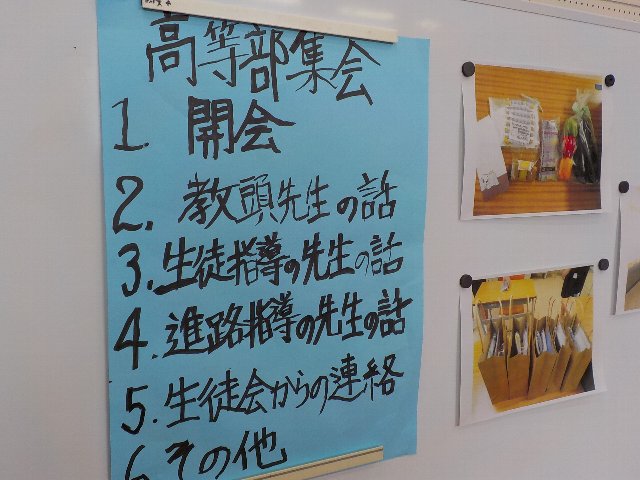 高等部集会
1. 開会
2. 教頭先生の話
3. 生徒指導の先生の話
4. 進路指導の先生の話
5. 生徒会からの連絡
6 その他